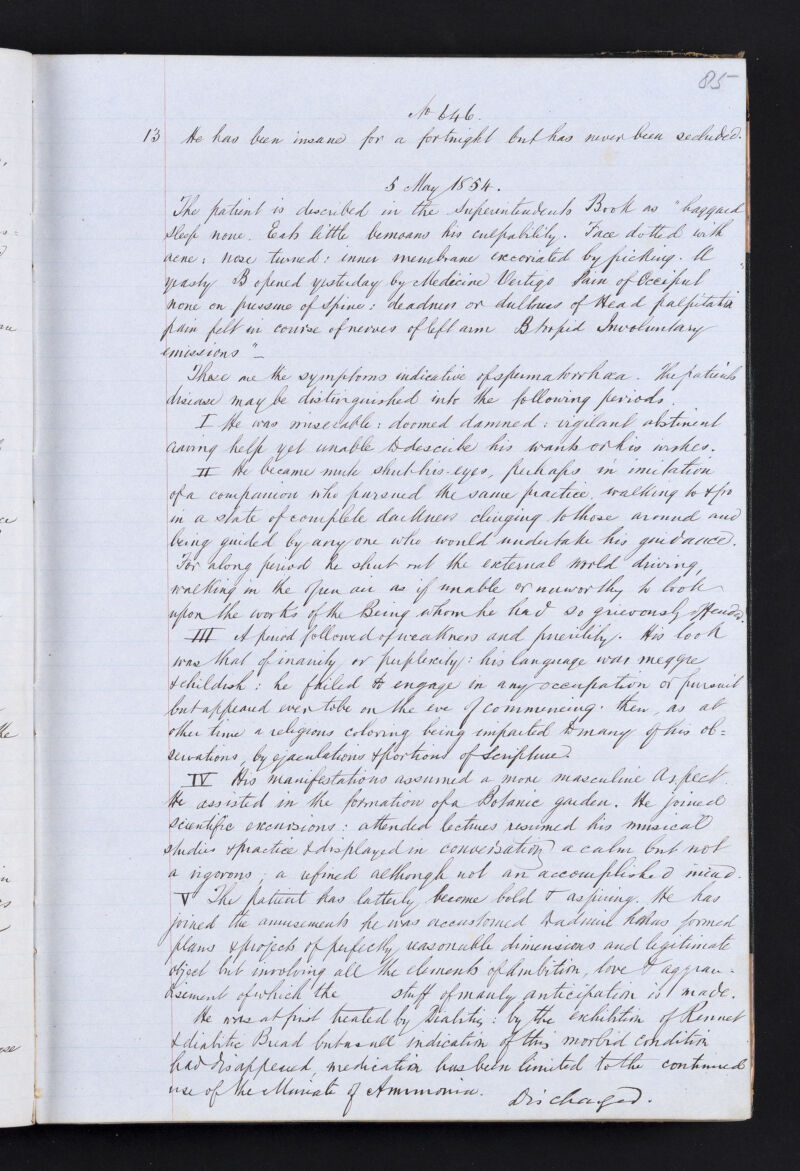 85
No 646.
13 He has been insane for a fortnight but has never been secluded.
5 May 1854.
The patient is described in the Superintendents Book as "haggard
Sleep none. Eats little bemoans his culpability. Face dotted with
acne: nose turned: inner membrane excoriated by picking. U
yeasty B opened yesterday by Medicine Vertigo Pain of Occiput
none on pressure of spine: deadness or dullness of Head palpitation
pain felt in course of nerves of left arm B torpid Involuntary
emissions" —
These are the symptoms indicative of spermatorrhœa. The patients
disease may be distinguished into the following periods.
I He was miserable: doomed damned: vigilant abstinent
craving help yet unable to describe his wants or his wishes.
II He became mute shut his eyes, perhaps in imitation
of a companion who pursued the same practice, walking to & fro
in a state of complete darkness clinging to those around and
being guided by any one who would undertake his guidance.
For along period he shut out the external world driving,
walking in the open air as if unable or unworthy to look
upon the works of the Being whom he had so grievously offended.
III A period followed of weakness and puerility. His look
was that of inanity or perplexity: his language was meggre
& childish: he failed to engage in any occupation or pursuit
but appeared ever to be on the eve of commencing. then, as at
other time a religious coloring being imparted to many of his ob=
servations, by ejaculations & portions of Scripture.
IV His manifestations assumed a more masculine aspect.
He assisted in the formation of a Botanic garden. He joined
Scientific excursions: attended lectures resumed his musical
studies & practice & displayed in conversation a calm but not
a vigorous; a refined although not an accomplished mind.
V The patient has latterly become bold & aspiring. He has
joined the amusements he was accustomed to has formed
plans & projects of perfectly reasonable dimensions and legitimate
object but involving all the elements of Ambition, love & aggran-
disement of which the stuff of manly anticipation is made.
He was at first treated by : by the exhibition of Rennet
& diabetic Bread but as all indication of this morbid condition
had disappeared, medication has been limited to the continued
use of the Muriate of Ammonia. Discharged.